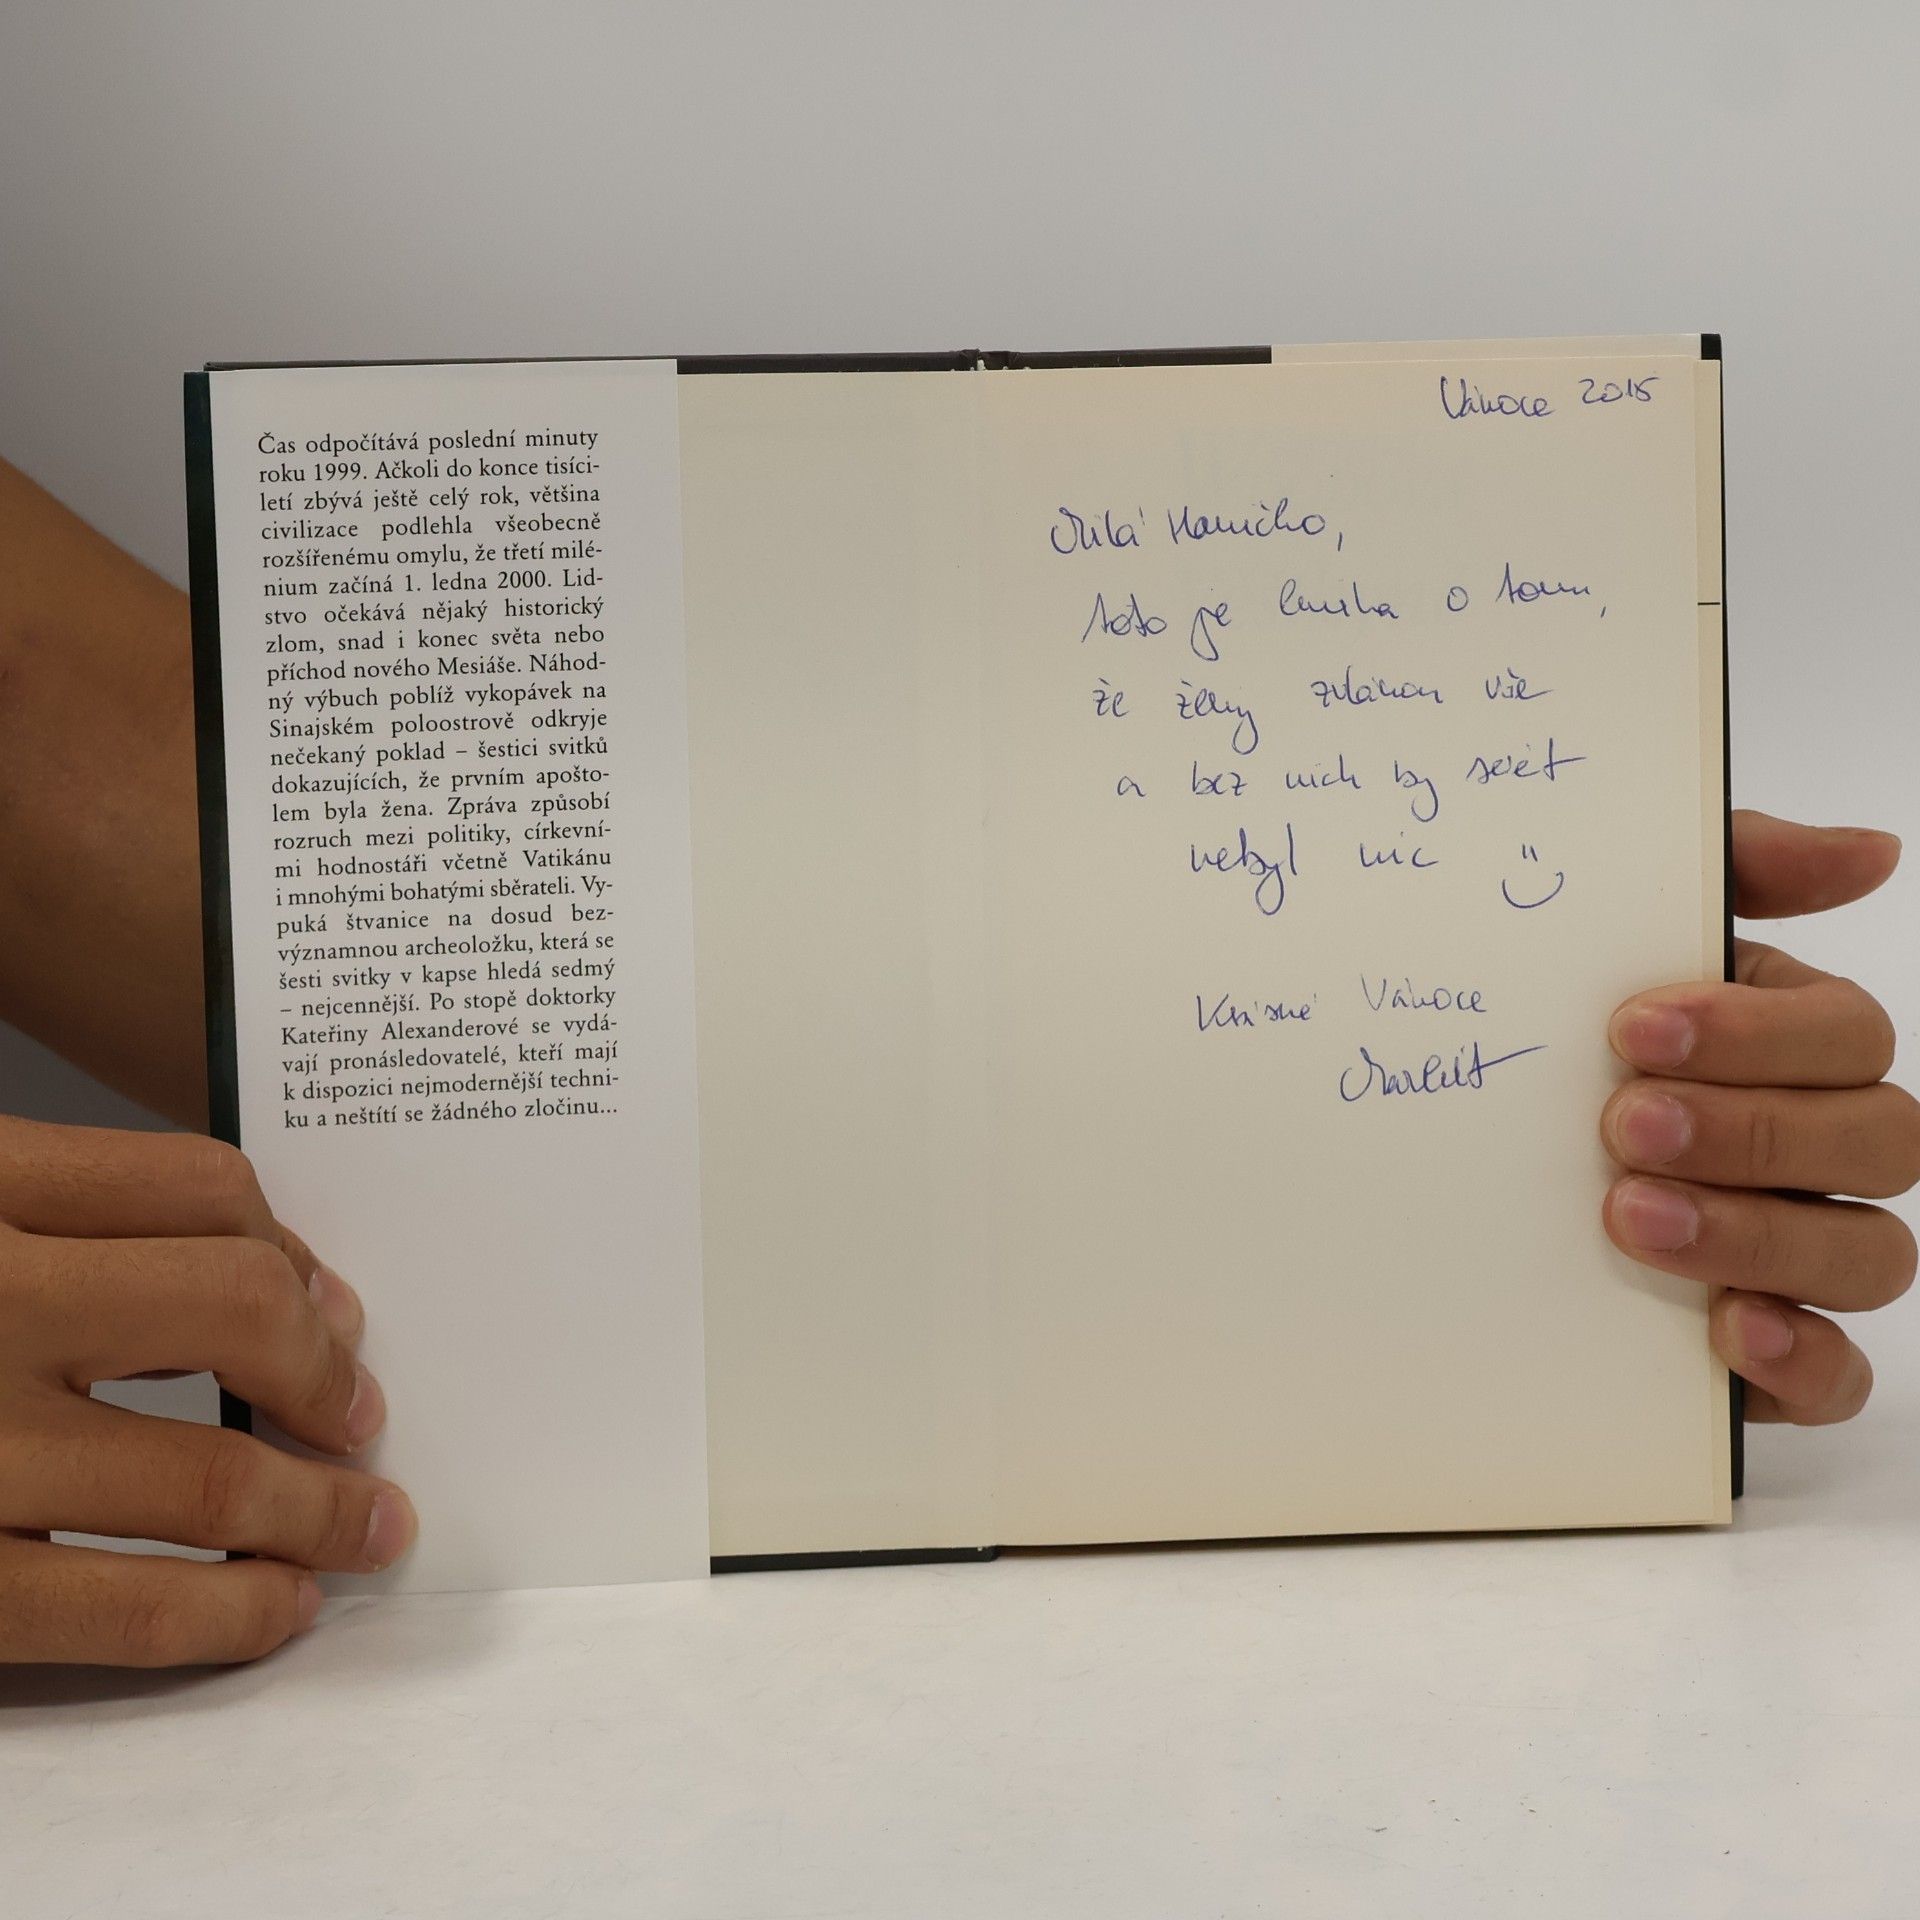 Čas odpočítává poslední minuty
roku 1999. Ačkoli do konce tisíci-
letí zbývá ještě celý rok, většina
civilizace podlehla všeobecně
rozšířenému omylu, že třetí milé-
nium začíná 1. ledna 2000. Lid-
stvo očekává nějaký historický
zlom, snad i konec světa nebo
příchod nového Mesiáše. Náhod-
ný výbuch poblíž vykopávek na
Sinajském poloostrově odkryje
nečekaný poklad – šestici svitků
dokazujících, že prvním apošto-
lem byla žena. Zpráva způsobí
rozruch mezi politiky, církevní-
mi hodnostáři včetně Vatikánu
i mnohými bohatými sběrateli. Vy-
puká štvanice na dosud bez-
významnou archeoložku, která se
šesti svitky v kapse hledá sedmý
– nejcennější. Po stopě doktorky
Kateřiny Alexanderové se vydá-
vají pronásledovatelé, kteří mají
k dispozici nejmodernější techni-
ku a neštítí se žádného zločinu...
Vánoce 2015
Milá Haničko,
toto je kniha o tom,
že ženy zvládnou vše
a bez nich by svět
nebyl nic
Krásné Vánoce